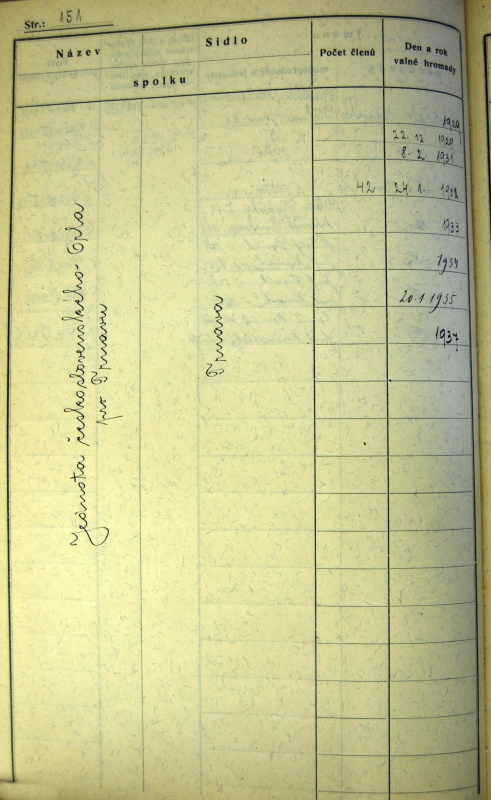 Str.: 151
Název
Sídlo
spolku
Počet členů
Den a rok
valné hromady
Jednota československého Orla
pro Trnavu
Trnava
1929
22. 12. 1920
8. 2. 1931
42 24. 1. 1932
1933
1934
20. 1 1935
1937